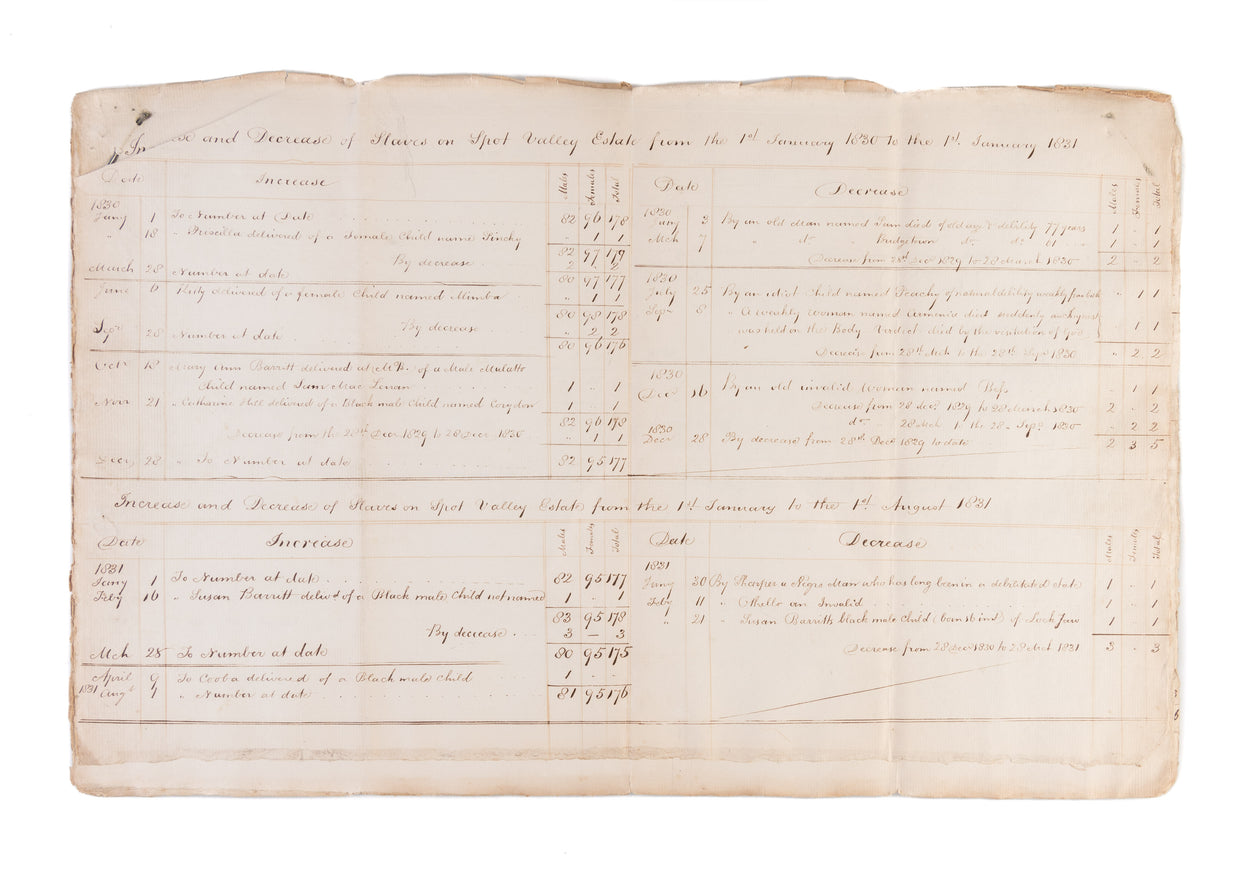 In se and Decrease of Slaves on Spot Valley Estate from the 1st January 1830 to the 1st January 1831
Date Increase Males Females Total
1830
Jany 1 To Number at Date 82 96 178
" 18 " Priscilla delivered of a Female Child name Pinchy " 1 1
82 97 179
By decrease 2 " 2
March 28 Number at date 80 97 177
June 6 " Kitty delivered of a female Child named Mimba " 1 1
80 98 178
By decrease " 2 2
Sepr 28 Number at date 80 96 176
Octr 18 Mary Ann Barritt delivered at of a Male Mulatto
Child named Sam Mac 1 " 1
Novr 21 " Catharine Hill delivered of a Black male Child named Corydon 1 " 1
82 96 178
Decrease from the 28th Decr 1829 to 28 Decr 1830 " 1 1
Decr 28 " To Number at date 82 95 177
Date Decrease Males Females Total
1830
Jany 3 By an old Man named Sam died of old age & debility 77 years 1 " 1
Mch 7 " do " do do 61 1 " 1
Decrease from 28th Decr 1829 to 28 March 1830 2 " 2
1830
July 25 By an idiot Child named Peachy of natural debility weakly from birth " 1 1
Sepr 8 " A weakly Woman named died suddenly an Inquest
was held on the Body Verdict died by the visitation of God " 1 1
Decrease from 28th Mch to the 28th Sepr 1830 " 2 2
1830
Decr 16 By an old invalid Woman named Bess " 1 1
Decrease from 28 decr 1829 to 28 March 1830 2 " 2
do " 28 Mch to the 28 Sepr 1830 " 2 2
1830
Decr 28 By decrease from 28th Decr 1829 to date 2 3 5
Increase and Decrease of Slaves on Spot Valley Estate from the 1st January to the 1st August 1831
Date Increase Males Females Total
1831
Jany 1 To Number at date 82 95 177
Feby 16 " Susan Barritt delivd of a Black male Child not named 1 " 1
83 95 178
By decrease 3 — 3
Mch 28 To Number at date 80 95 175
April 9 To Cooba delivered of a Black male Child 1
1831 Augt 1 " Number at date 81 95 176
Date Decrease Males Females Total
1831
Jany 30 By Sharper a Negro Man who has long been in a debilitated state 1 " 1
Feby 11 " Othello an Invalid 1 " 1
" 21 " Susan Barritts black male Child (born 16 inst) of Lock Jaw 1 " 1
Decrease from 28 Decr 1830 to 28 Mch 1831 3 " 3